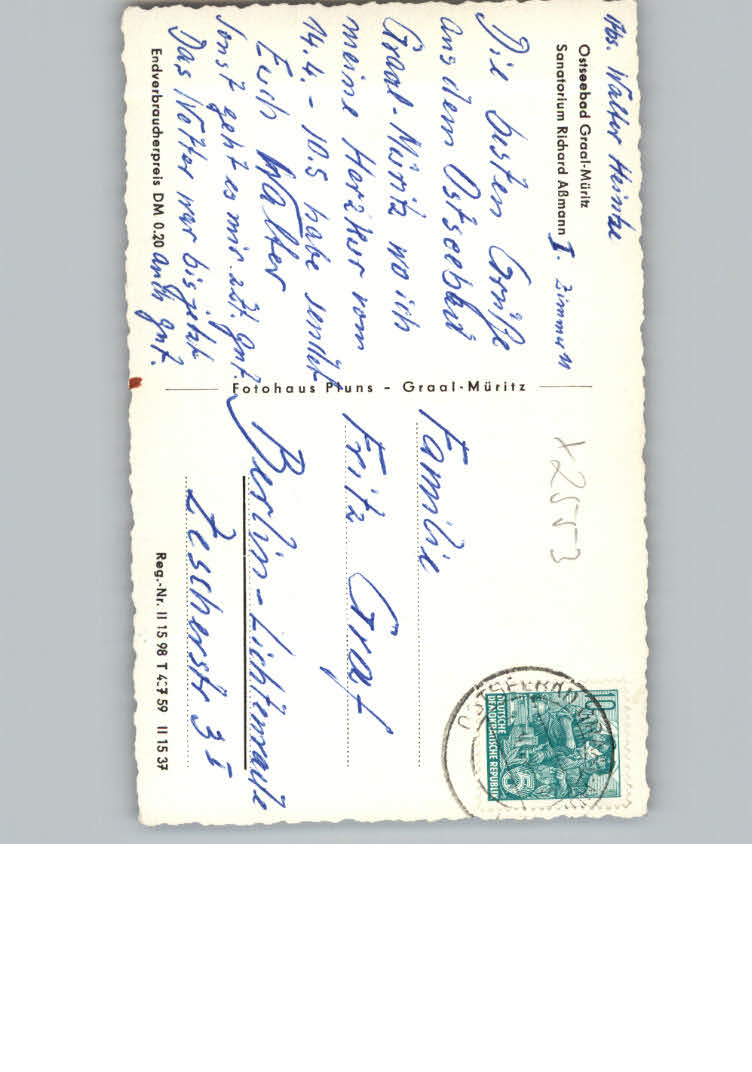 Abs. Walter Heintze
Ostseebad Graal-Müritz
Sanatorium Richard Aßmann I. Zimmer 11
Die besten Grüße
aus dem Ostseebad
Graal-Müritz wo ich
meine Herzkur vom
14.4. - 10.5 habe sendet
Euch Walter
Sonst geht es mir z.Zt. gut.
Das Wetter war bis jetzt
auch gut.
Endverbraucherpreis DM 0.20
Fotohaus Pruns - Graal-Müritz
X2553
Familie
Fritz Graf
Berlin-Lichtenrade
Zescherstr 3 I
Reg.-Nr. II 15 98 T 437 59 II 15 37
10
DEUTSCHE
DEMOKRATISCHE REPUBLIK
OSTSEEBAD